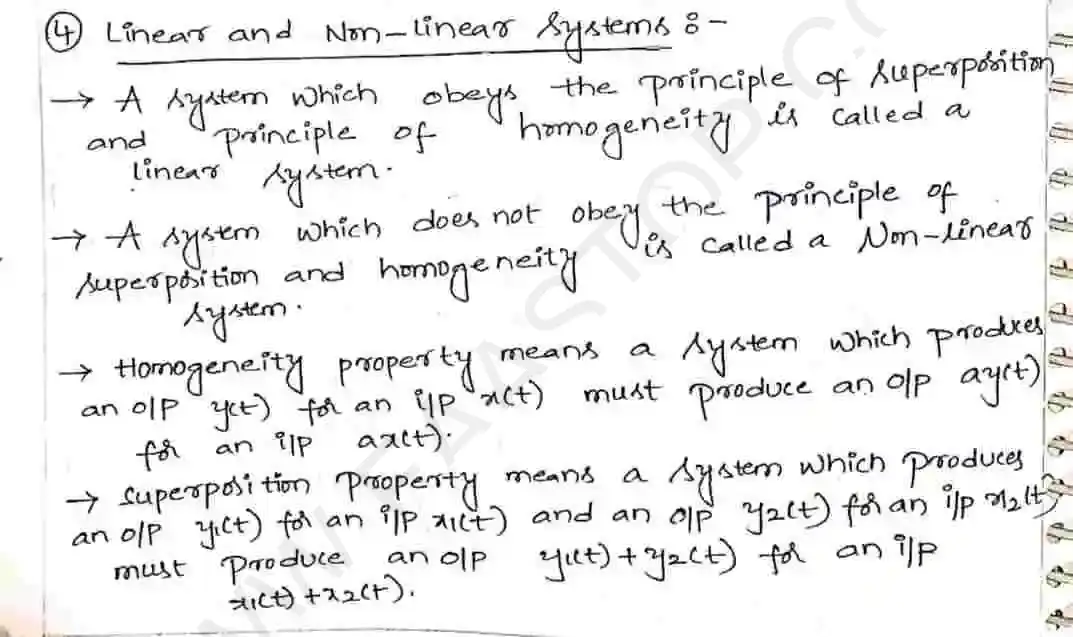 ④ Linear and Non-linear Systems :-
→ A system which obeys the principle of superposition
and principle of homogeneity is called a
linear system.
→ A system which does not obey the principle of
superposition and homogeneity is called a Non-linear
system.
→ Homogeneity property means a system which produces
an o/p y(t) for an i/p x(t) must produce an o/p ay(t)
for an i/p ax(t).
→ superposition property means a system which produces
an o/p y1(t) for an i/p x1(t) and an o/p y2(t) for an i/p x2(t)
must produce an o/p y1(t) + y2(t) for an i/p
x1(t) + x2(t).